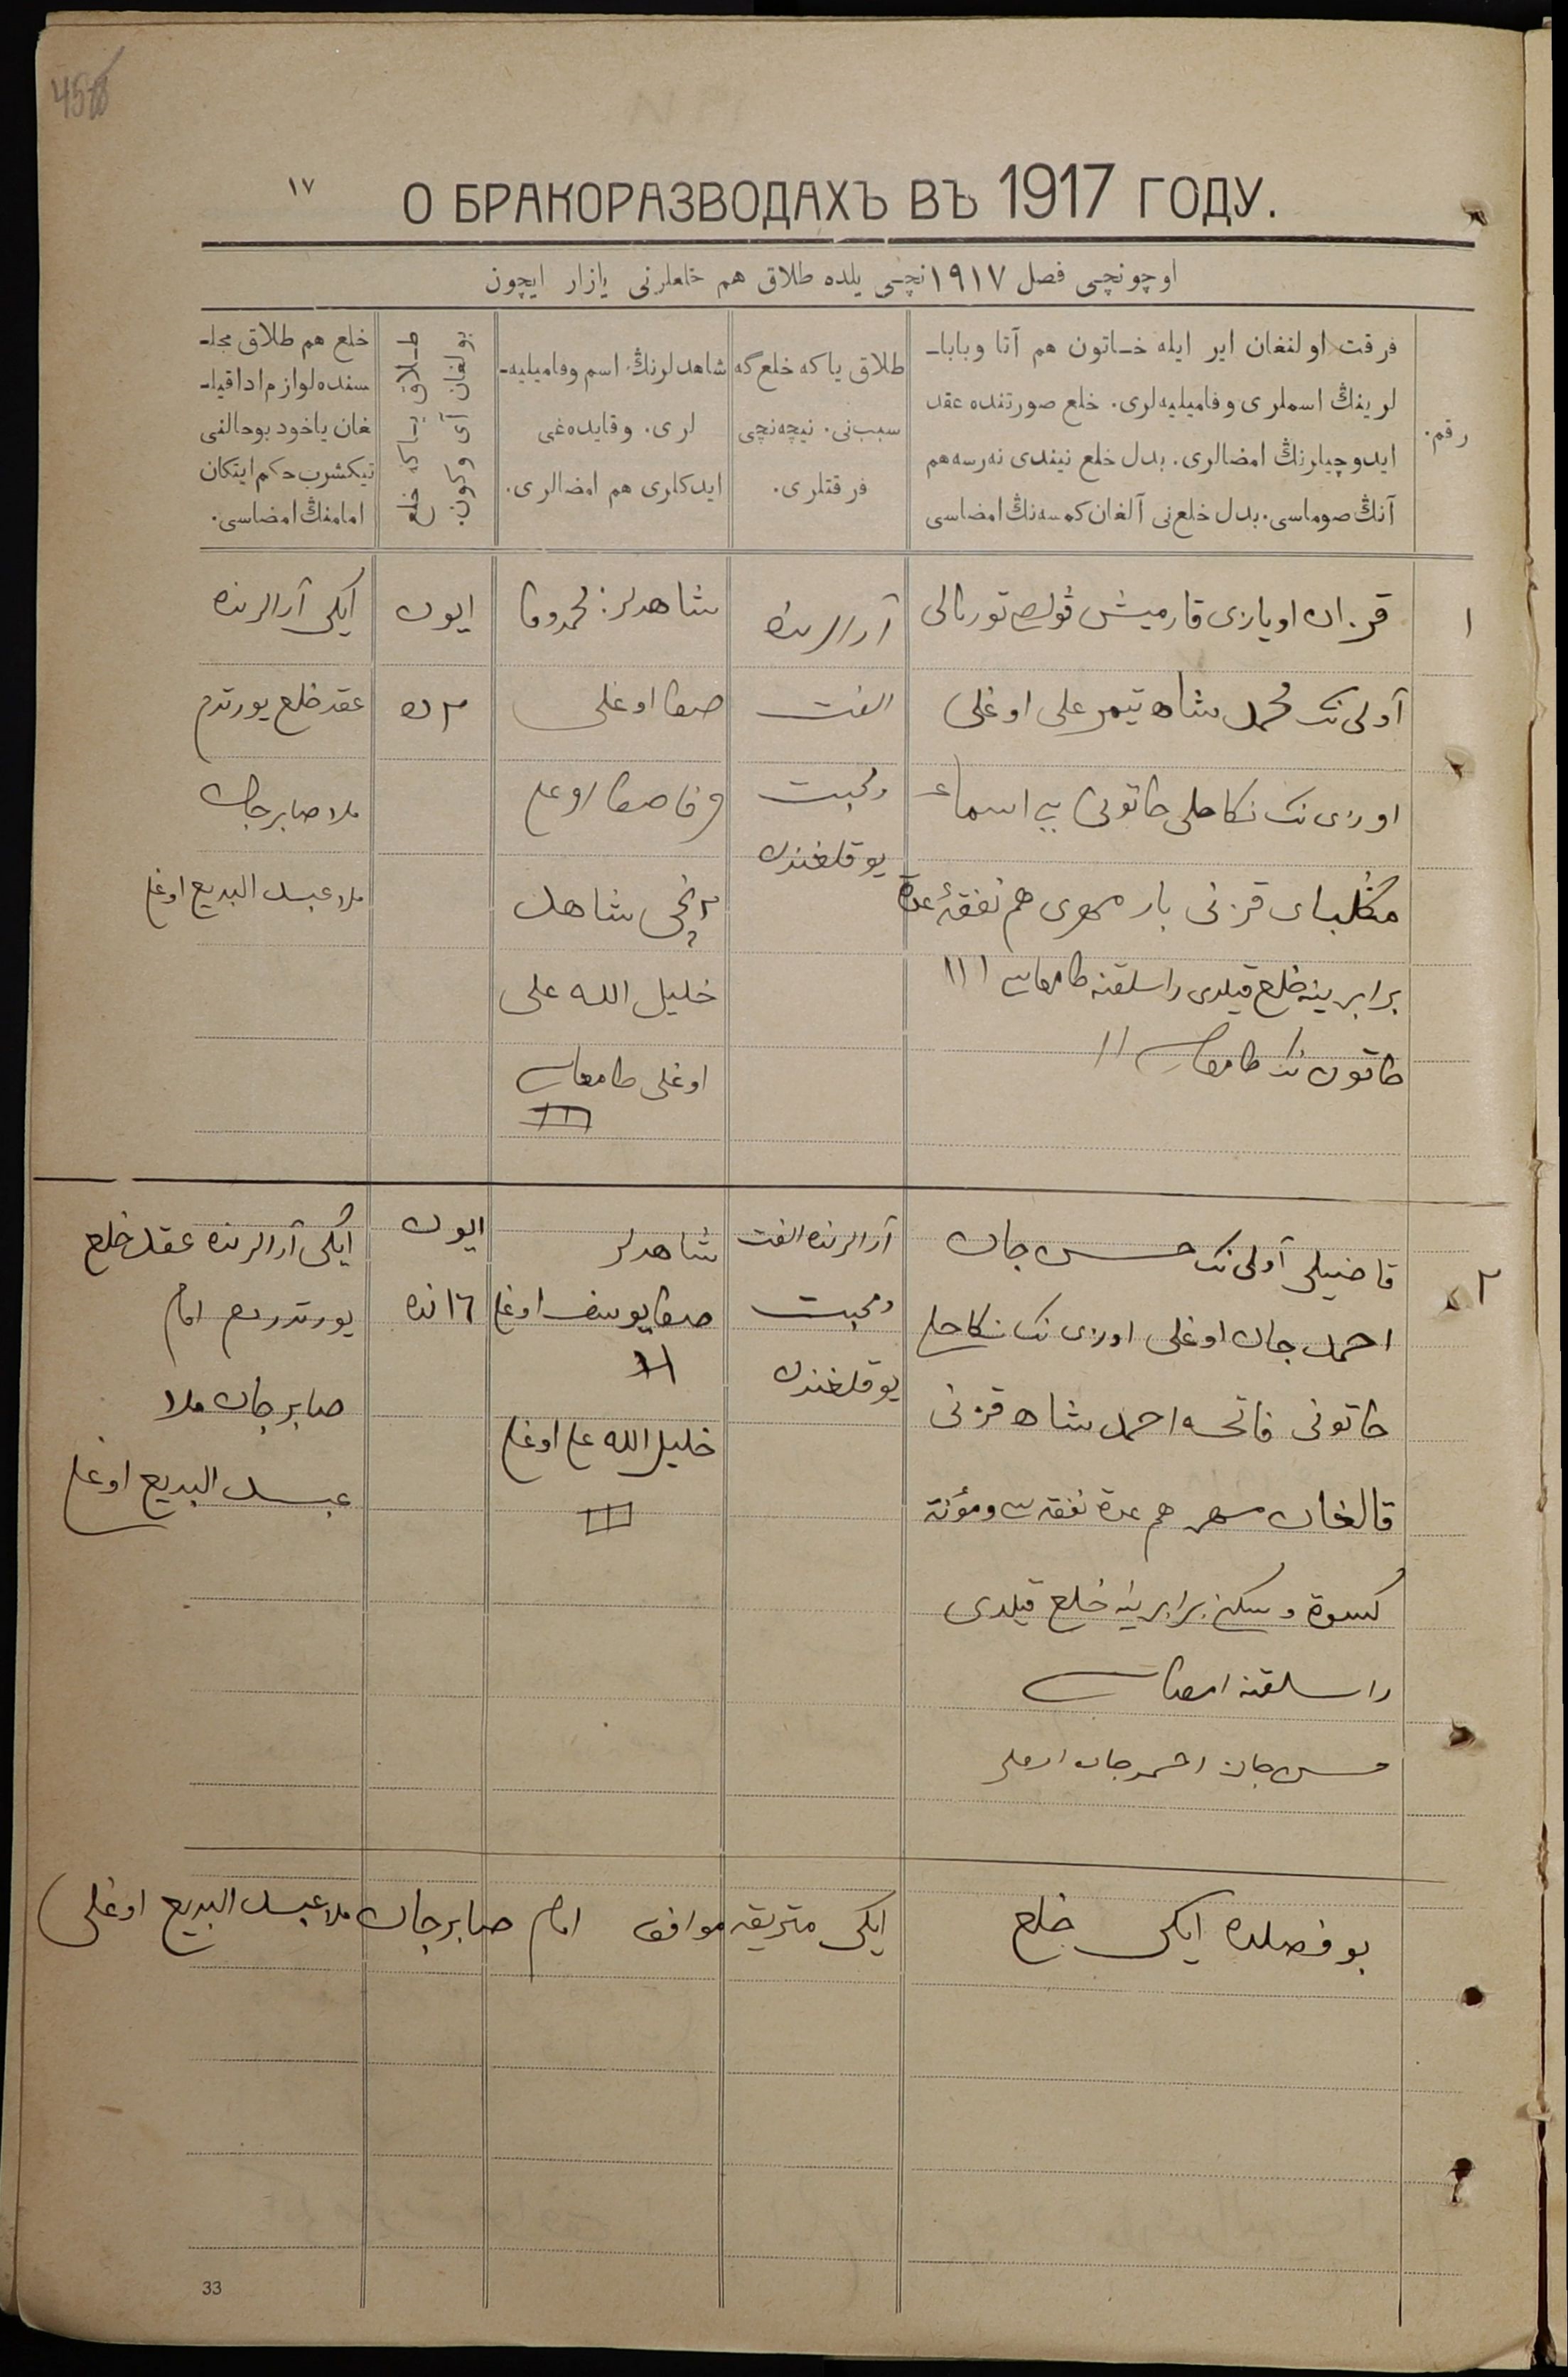 458
١٧
О БРАКОРАЗВОДАХЪ ВЪ 1917 ГОДУ.
اوچونچی فصل ١٩١٧ نچی یلده طلاق هم خلعلرنی یازار ایچون
رقم.
فرقت اولنغان ایر ایله خاتون هم آتا و بابا-
لرینڭ اسملری و فامیلیه‌لری. خلع صورتنده عقد
ایدوچیلرنڭ امضالری. بدل خلع نیندی نه‌رسه هم
آنڭ صوماسی. بدل خلع‌نی آلغان کمسه‌نڭ امضاسی
طلاق یا که خلع گه
سبب‌نی. نیچه‌نچی
فرقتلری.
شاهدلرنڭ اسم و فامیلیه-
لری. و قایده‌غی
ایدکلری هم امضالری.
طلاق یا که خلع
بولغان آی و کون.
خلع هم طلاق مجلـ
سنده لوازم ادا قیلـ
غان یاخود بو حالنی
تیکشرب حکم ایتکان
امامنڭ امضاسی.
١
قزان اویازی قارمیش ڤولص
آولی نک محمد شاه تیمر علی اوغلی
اوزی نک نکاحلی خاتونی بی بی اسماء
قزنی بار مهری هم نفقۀ عدة
برابرینه خلع قیلدی راسلقنه طامغاسی ١١١
خاتون نک طامغاسی ١١
آرالرنده
الفت
ومحبت
یوقلغندن
شاهدلر:
اوغلی
اوغلی
٢ نچی شاهد
خلیل الله علی
اوغلی طامغاسی
ایون
٢ ده
ایکی آرالرنده
عقد خلع یورتدم
ملا صابرجان
ملا عبد البدیع اوغلی
٢
قاضیلی آولی نک حسن جان
احمد جان اوغلی اوزی نک نکاحلی
خاتونی فاتحه احمد شاه قزنی
قالغان مهر هم عدة نفقه سی و مؤنة
کسوة و سکنی برابرینه خلع قیلدی
راسلقنه امضاسی
حسن جان احمد جان اوغلی
آرالرنده الفت
ومحبت
یوقلغندن
شاهدلر
یوسف اوغلی
خلیل الله علی اوغلی
ایون
١٦ نده
ایکی آرالرنده عقد خلع
یورتدردم امام
صابر جان ملا
عبد البدیع اوغلی
بو فصلده ایکی خلع
ایکی متریقه موافق امام صابر جان ملا عبد البدیع اوغلی
33